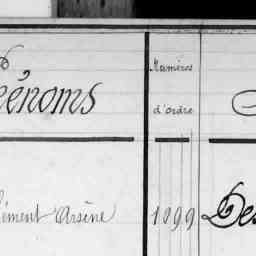 Prénoms
Numéros
d'ordre
Clément Arsène 1099 Des